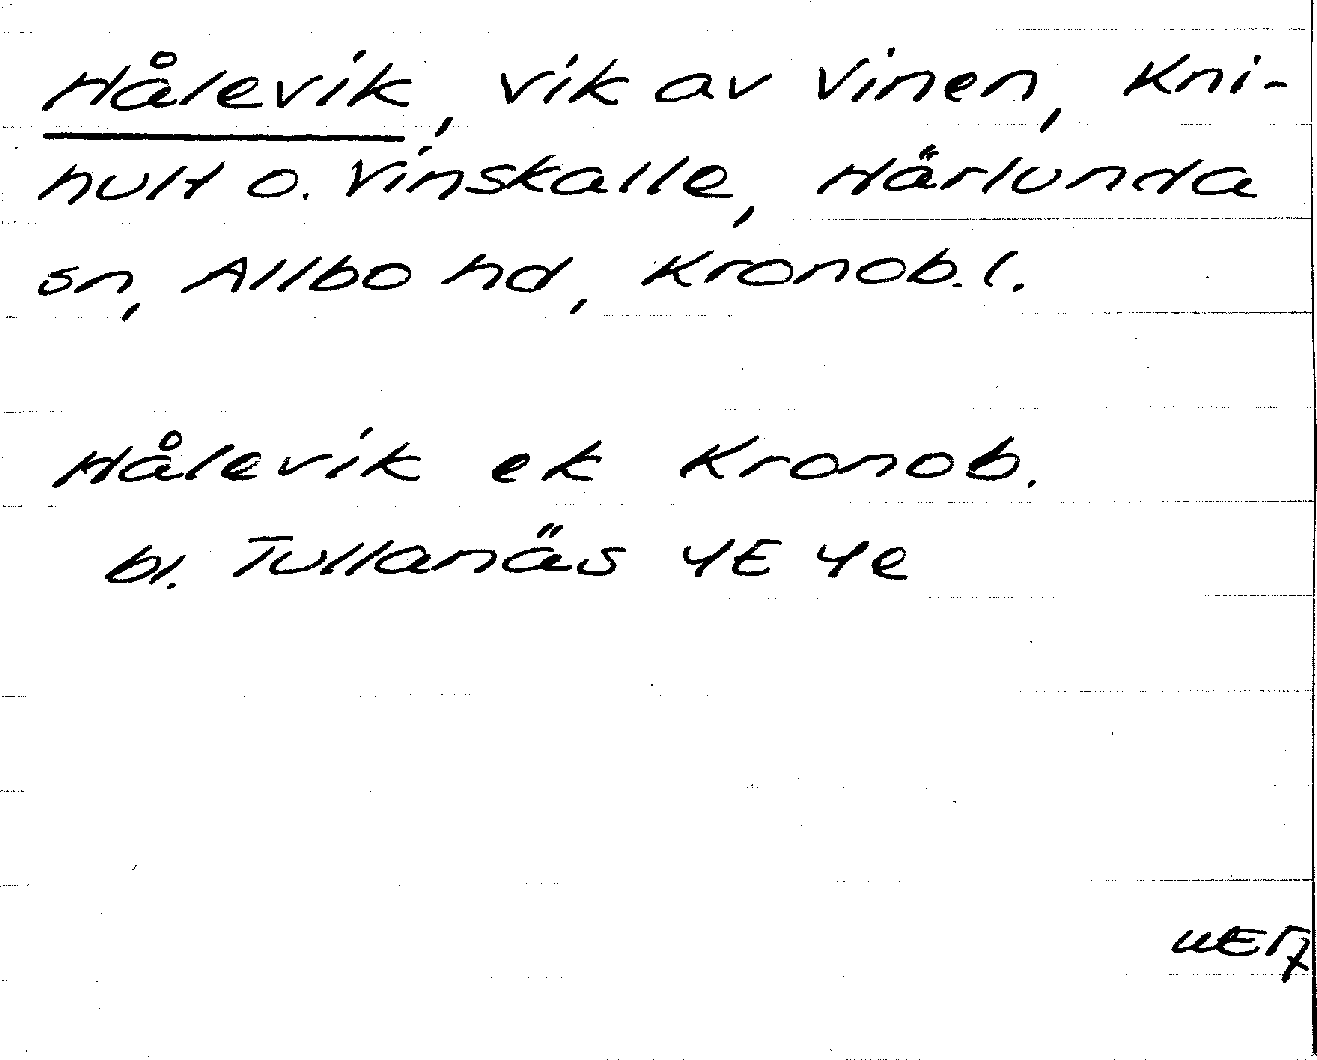 Hålevik, vik av Vinen, Kni-
hult o. Vinskalle, Härlunda
sn, Allbo hd, Kronob. l.
Hålevik ek Kronob.
bl. Tullanäs 4E 4e